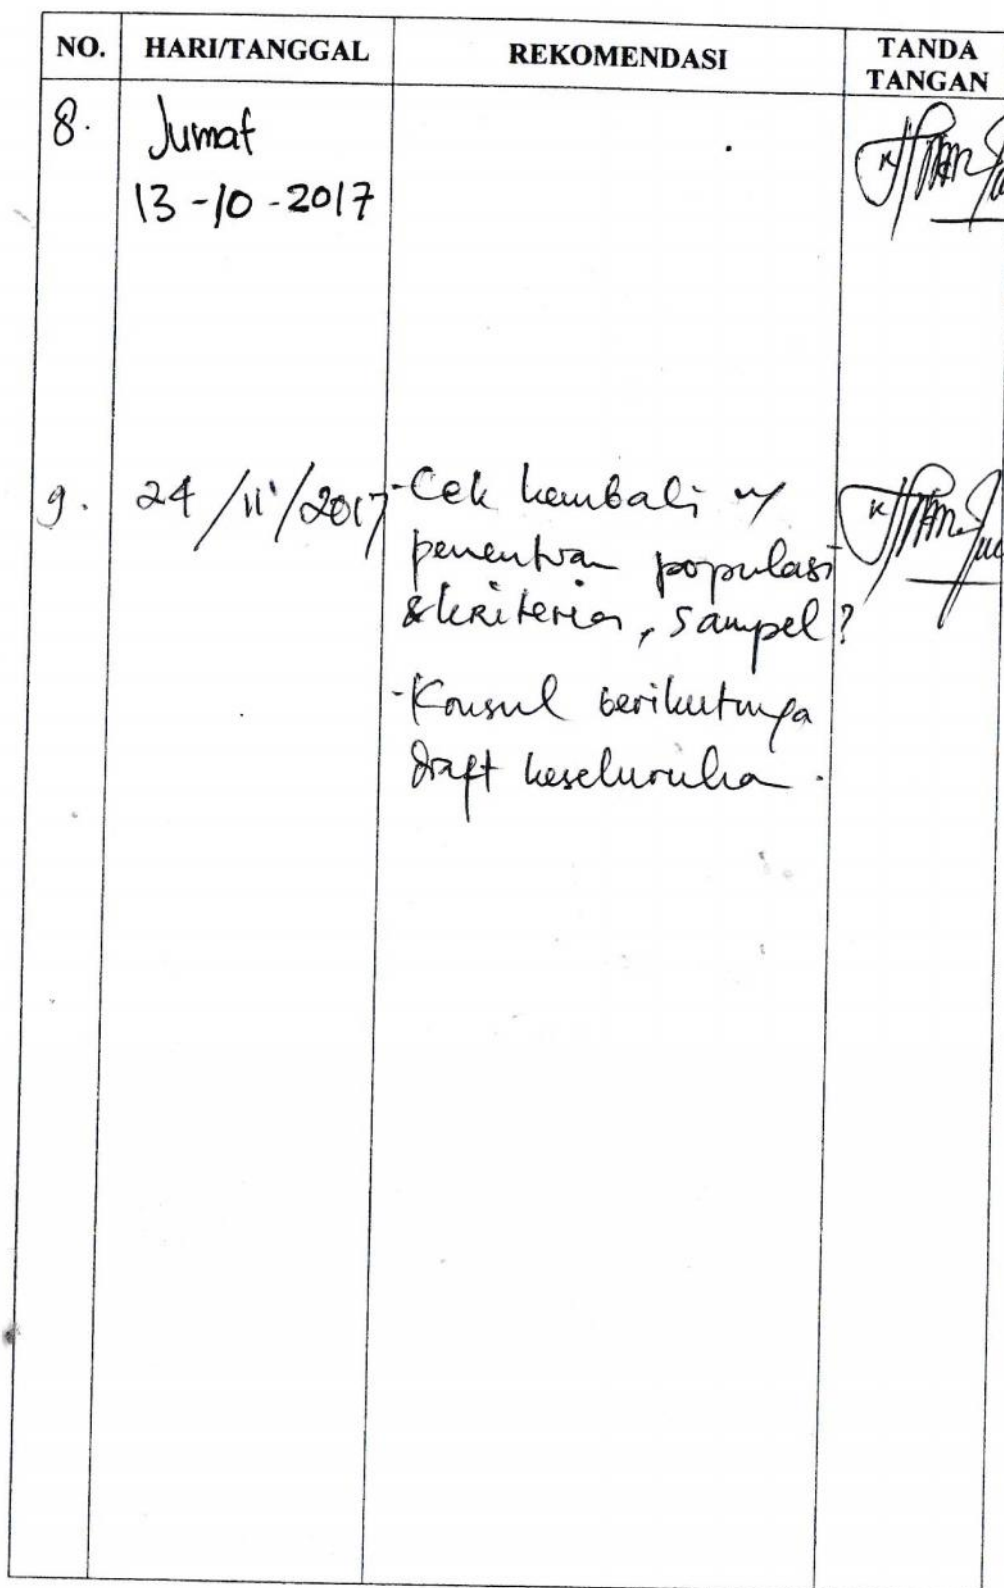 NO. HARI/TANGGAL REKOMENDASI TANDA TANGAN
8. Jumat
13-10-2017
9. 24/11/2017 -Cek kembali u/
penentuan populasi
& kriteria, sampel?
-Konsul berikutnya
draft keseluruhan.